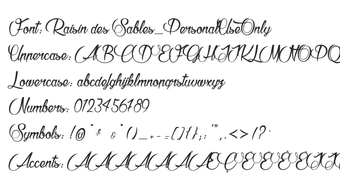 Font: Raisin des Sables_PersonalUseOnly
Uppercase: ABCDEFGHIJKLMNOPQ
Lowercase: abcdefghijklmnopqrstuvwxyz
Numbers: 0123456789
Symbols: !@ & ()_+-=[]{};:'",.<>/?
Accents: ÀÁÂÃÄÅÆÇÈÉÊËÌÍ